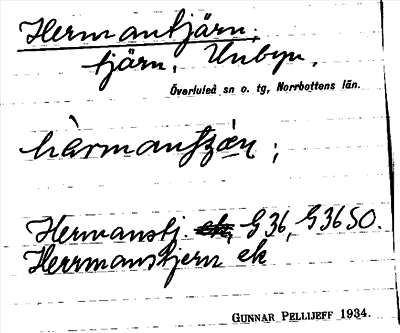 Hermantjärn,
tjärn, Unbyn,
Överluleå sn o. tg, Norrbottens län.
Hermanstj. ek, G36, G36SO.
Herrmanstjern ek
GUNNAR PELLIJEFF 1934.